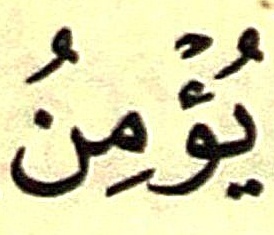 يُؤْمِنُ